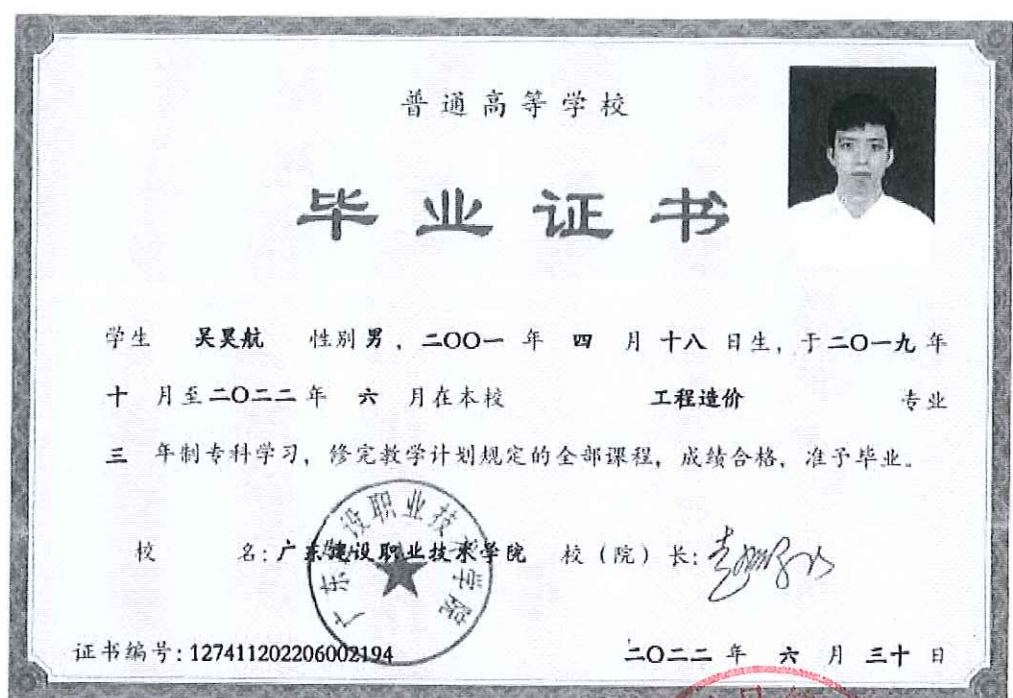 普通高等学校
毕业证书
学生 吴昊航 性别 男，二〇〇一 年 四 月 十八 日生，于 二〇一九 年
十 月至 二〇二二 年 六 月在本校 工程造价 专业
三 年制专科学习，修完教学计划规定的全部课程，成绩合格，准予毕业。
广东建设职业技术学院
校 名：广东建设职业技术学院 校（院）长：
证书编号：127411202206002194 二〇二二 年 六 月 三十 日